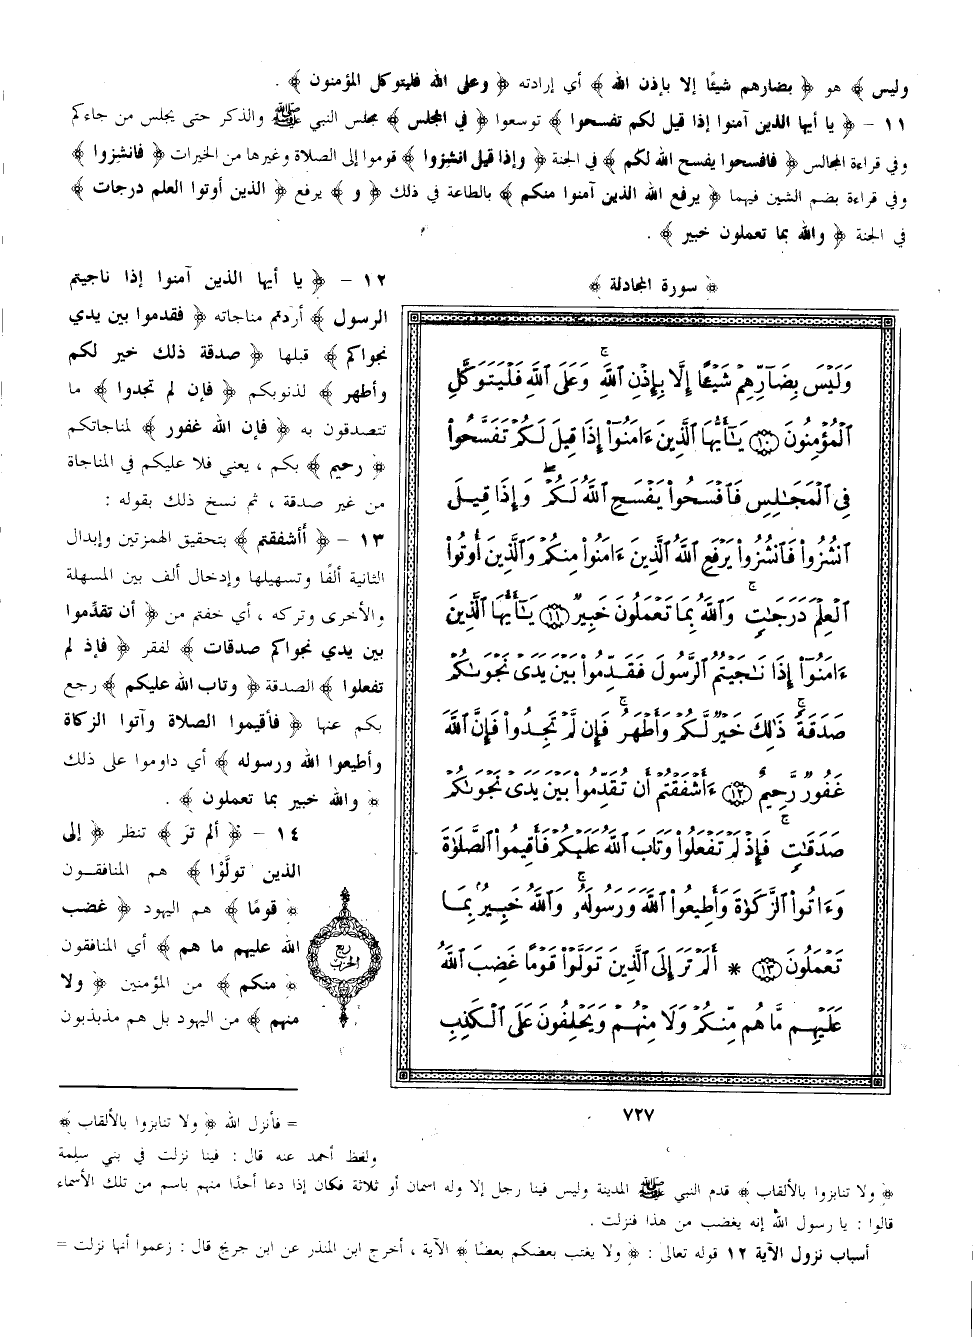 وليس ﴾ هو ﴿ بضارهم شيئًا إلا بإذن الله ﴾ أي إرادته ﴿ وعلى الله فليتوكل المؤمنون ﴾ .
١١ – ﴿ يا أيها الذين آمنوا إذا قيل لكم تفسحوا ﴾ توسعوا ﴿ في المجلس ﴾ مجلس النبي ﷺ والذكر حتى يجلس من جاءكم
وفي قراءة المجالس ﴿ فافسحوا يفسح الله لكم ﴾ في الجنة ﴿ وإذا قيل انشزوا ﴾ قوموا إلى الصلاة وغيرها من الخيرات ﴿ فانشزوا ﴾
وفي قراءة بضم الشين فيهما ﴿ يرفع الله الذين آمنوا منكم ﴾ بالطاعة في ذلك ﴿ و ﴾ يرفع ﴿ الذين أوتوا العلم درجات ﴾
في الجنة ﴿ والله بما تعملون خبير ﴾ .
﴿ سورة المجادلة ﴾
وَلَيْسَ بِضَآرِّهِمْ شَيْـًٔا إِلَّا بِإِذْنِ ٱللَّهِ ۚ وَعَلَى ٱللَّهِ فَلْيَتَوَكَّلِ
ٱلْمُؤْمِنُونَ ١٠ يَـٰٓأَيُّهَا ٱلَّذِينَ ءَامَنُوٓا۟ إِذَا قِيلَ لَكُمْ تَفَسَّحُوا۟
فِى ٱلْمَجَـٰلِسِ فَٱفْسَحُوا۟ يَفْسَحِ ٱللَّهُ لَكُمْ ۖ وَإِذَا قِيلَ
ٱنشُزُوا۟ فَٱنشُزُوا۟ يَرْفَعِ ٱللَّهُ ٱلَّذِينَ ءَامَنُوا۟ مِنكُمْ وَٱلَّذِينَ أُوتُوا۟
ٱلْعِلْمَ دَرَجَـٰتٍ ۚ وَٱللَّهُ بِمَا تَعْمَلُونَ خَبِيرٌ ١١ يَـٰٓأَيُّهَا ٱلَّذِينَ
ءَامَنُوٓا۟ إِذَا نَـٰجَيْتُمُ ٱلرَّسُولَ فَقَدِّمُوا۟ بَيْنَ يَدَىْ نَجْوَىٰكُمْ
صَدَقَةً ۚ ذَٰلِكَ خَيْرٌ لَّكُمْ وَأَطْهَرُ ۚ فَإِن لَّمْ تَجِدُوا۟ فَإِنَّ ٱللَّهَ
غَفُورٌ رَّحِيمٌ ١٢ ءَأَشْفَقْتُمْ أَن تُقَدِّمُوا۟ بَيْنَ يَدَىْ نَجْوَىٰكُمْ
صَدَقَـٰتٍ ۚ فَإِذْ لَمْ تَفْعَلُوا۟ وَتَابَ ٱللَّهُ عَلَيْكُمْ فَأَقِيمُوا۟ ٱلصَّلَوٰةَ
وَءَاتُوا۟ ٱلزَّكَوٰةَ وَأَطِيعُوا۟ ٱللَّهَ وَرَسُولَهُۥ ۚ وَٱللَّهُ خَبِيرٌۢ بِمَا
تَعْمَلُونَ ١٣ * أَلَمْ تَرَ إِلَى ٱلَّذِينَ تَوَلَّوْا۟ قَوْمًا غَضِبَ ٱللَّهُ
عَلَيْهِم مَّا هُم مِّنكُمْ وَلَا مِنْهُمْ وَيَحْلِفُونَ عَلَى ٱلْكَذِبِ
١٢ – ﴿ يا أيها الذين آمنوا إذا ناجيتم
الرسول ﴾ أردتم مناجاته ﴿ فقدموا بين يدي
نجواكم ﴾ قبلها ﴿ صدقة ذلك خير لكم
وأطهر ﴾ لذنوبكم ﴿ فإن لم تجدوا ﴾ ما
تتصدقون به ﴿ فإن الله غفور ﴾ لمناجاتكم
﴿ رحيم ﴾ بكم ، يعني فلا عليكم في المناجاة
من غير صدقة ، ثم نسخ ذلك بقوله :
١٣ – ﴿ أأشفقتم ﴾ بتحقيق الهمزتين وإبدال
الثانية ألفًا وتسهيلها وإدخال ألف بين المسهلة
والأخرى وتركه ، أي خفتم من ﴿ أن تقدِّموا
بين يدي نجواكم صدقات ﴾ لفقر ﴿ فإذ لم
تفعلوا ﴾ الصدقة ﴿ وتاب الله عليكم ﴾ رجع
بكم عنها ﴿ فأقيموا الصلاة وآتوا الزكاة
وأطيعوا الله ورسوله ﴾ أي داوموا على ذلك
﴿ والله خبير بما تعملون ﴾ .
١٤ – ﴿ ألم تر ﴾ تنظر ﴿ إلى
الذين تولَّوْا ﴾ هم المنافقون
﴿ قومًا ﴾ هم اليهود ﴿ غضب
الله عليهم ما هم ﴾ أي المنافقون
﴿ منكم ﴾ من المؤمنين ﴿ ولا
منهم ﴾ من اليهود بل هم مذبذبون
ربع
الحزب
٧٢٧
= فأنزل الله ﴿ ولا تنابزوا بالألقاب ﴾
ولفظ أحمد عنه قال : فينا نزلت في بني سلِمة
﴿ ولا تنابزوا بالألقاب ﴾ قدم النبي ﷺ المدينة وليس فينا رجل إلا وله اسمان أو ثلاثة فكان إذا دعا أحدًا منهم باسم من تلك الأسماء
قالوا : يا رسول الله إنه يغضب من هذا فنزلت .
أسباب نزول الآية ١٢ قوله تعالى : ﴿ ولا يغتب بعضكم بعضًا ﴾ الآية ، أخرج ابن المنذر عن ابن جريج قال : زعموا أنها نزلت =